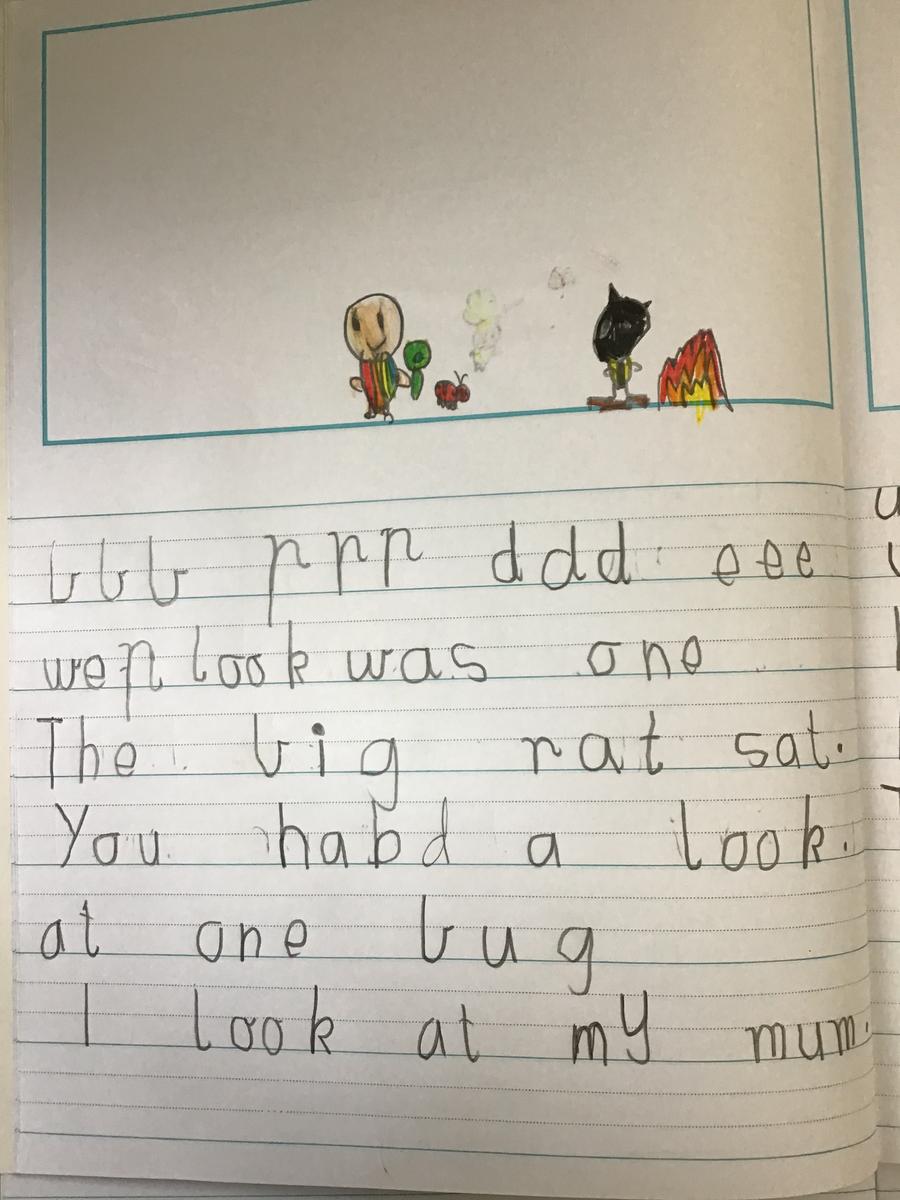 bbb ppp ddd eee
wep look was one
The big rat sat.
You habd a look.
at one bug
I look at my mum.